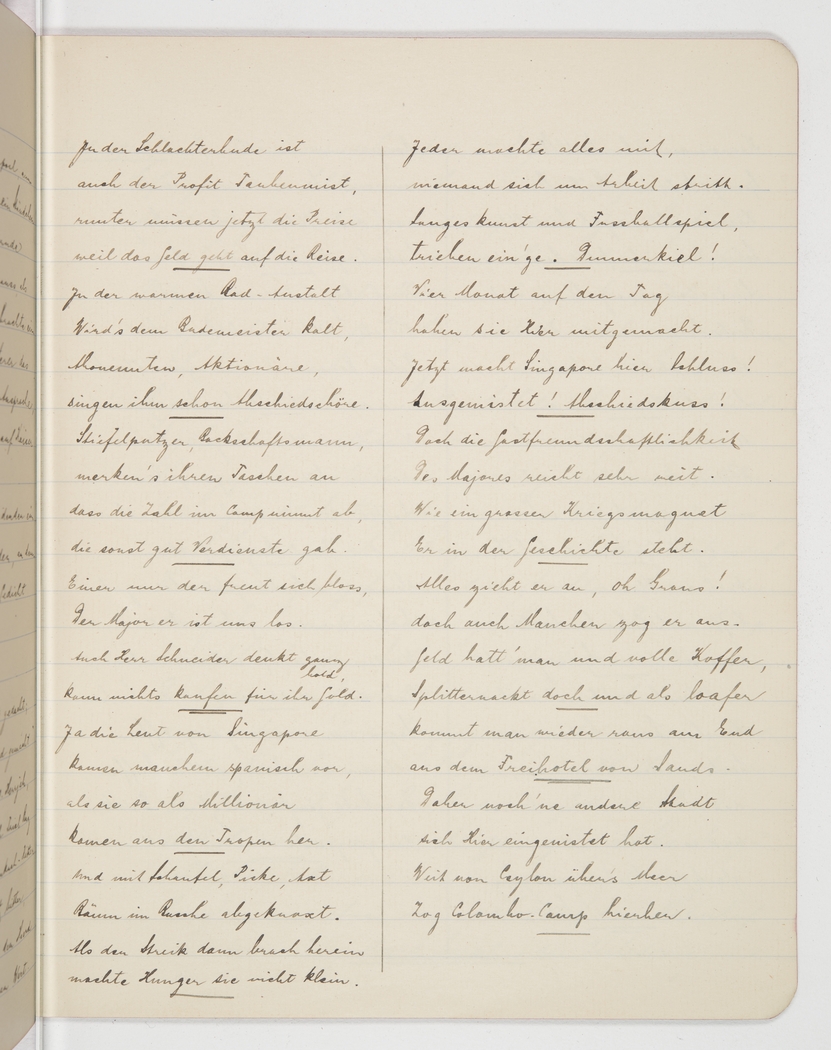 In der Schlachterbude ist
auch der Profit Taubenmist,
runter müssen jetzt die Preise
weil das Geld geht auf die Reise.
In der warmen Bad-Anstalt
Wird's dem Bademeister kalt,
Abonennten, Aktionäre,
singen ihm schon Abschiedschöre.
Stiefelputzer, Backschaftsmann,
merken's ihren Taschen an
dass die Zahl im Camp nimmt ab,
die sonst gut Verdienste gab.
Einer nur der freut sich bloss,
Der Major er ist uns los.
Auch Herr Schneider denkt ganz
bald,
kann nichts kaufen für ihr Gold.
Ja die Leut von Singapore
kamen manchem spanisch vor,
als sie so als Millionär
kamen aus den Tropen her.
Und mit Schaufel, Picke, Axt
Bäum im Busche abgeknaxt.
Als der Streik dann brach herein
machte Hunger sie nicht klein.
Jeder machte alles mit,
niemand sich um Arbeit stritt.
Sangeskunst und Fussballspiel,
trieben ein'ge. Dunnerkiel!
Vier Monat auf den Tag
haben sie Hier mitgemacht.
Jetzt macht Singapore hier Schluss!
Ausgemistet! Abschiedskuss!
Doch die Gastfreundschaftlichkeit
Des Majores reicht sehr weit.
Wie ein grosser Kriegsmagnat
Er in der Geschichte steht.
Alles zieht er an, oh Graus!
doch auch Manchen zog er aus.
Geld hatt' man und volle Koffer,
Splitternackt doch und als loafer
kommt man wieder raus am End
aus dem Freihotel von Sands.
Daher noch 'ne andere Stadt
sich Hier eingenistet hat.
Weit von Ceylon über's Meer
Zog Colombo-Camp hierher.